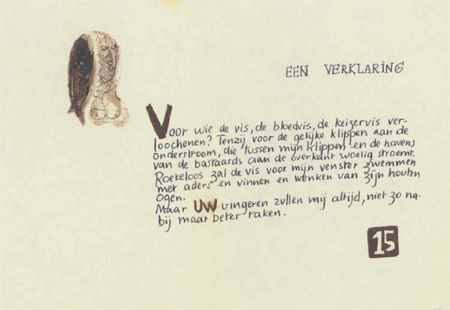 EEN VERKLARING
Voor wie de vis, de bloedvis, de keizervis ver-
loochenen? Tenzij voor de gelijke klippen aan de
onderstroom, die tussen mijn klippen en de havens
van de bastaards aan de overkant woelig stroomt.
Roekeloos zal de vis voor mijn venster zwemmen
met aders en vinnen en wenken van zijn houten
ogen.
Maar UW vingeren zullen mij altijd, niet zo na-
bij maar beter raken.
15